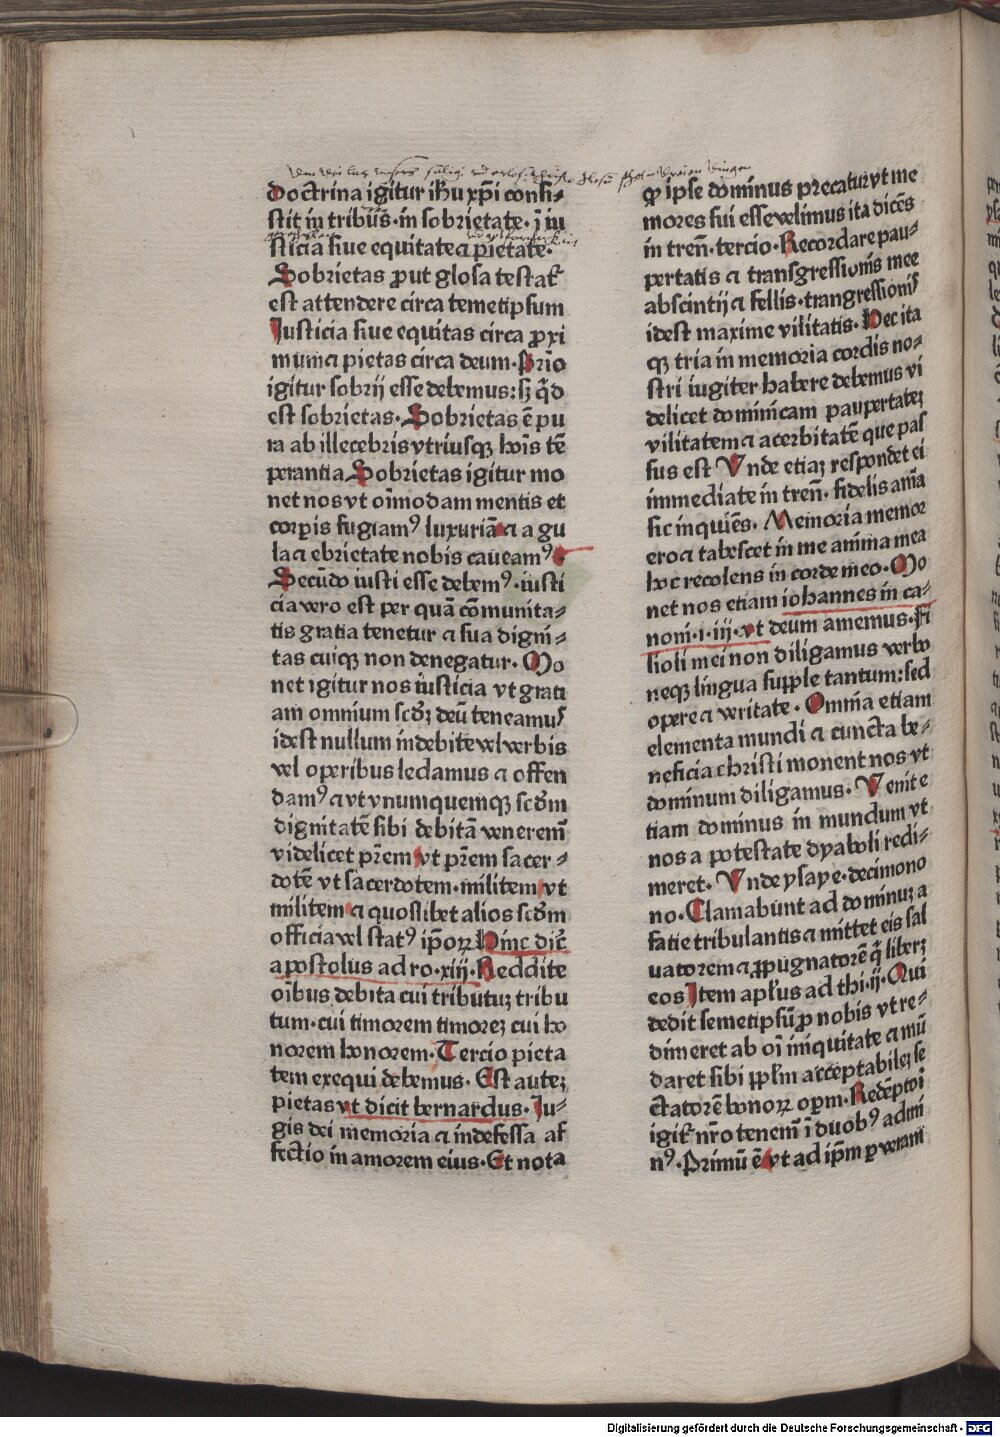 doctrina igitur ihū xp̄i consi-
stit in tribus · in sobrietate · ī iu
sticia siue equitate ⁊ pietate ·
Sobrietas ꝓut glosa testat̄
est attendere circa temetipsum
Iusticia siue equitas circa ꝓxi
mum ⁊ pietas circa deum · Prīo
igitur sobrij esse debemus : sꝫ qͥd
est sobrietas · Sobrietas ē pu
ra ab illecebris vtriusqꝫ hoīs tē
perantia Sobrietas igitur mo
net nos vt oīmodam mentis et
corꝑis fugiamꝰ luxuriā ⁊ a gu
la ⁊ ebrietate nobis caueamꝰ ·
Secūdo iusti esse debemꝰ · iusti
cia vero est per quā cōmunita⸗
tis gratia tenetur ⁊ sua digni⸗
tas cuiqꝫ non denegatur · Mo
net igitur nos iusticia vt grati
am omnium scd̄ꝫ deū teneamus
idest nullum indebite vel verbis
vel operibus ledamus ⁊ offen
damꝰ ⁊ vt vnumquemqꝫ scd̄m
dignitatē sibi debitā veneremꝰ
videlicet pr̄em vt pr̄em sacer⸗
dotē vt sacerdotem · militem vt
militem ⁊ quoslibet alios scd̄m
officia vel statꝰ ip̄oꝝ Hinc dic̄
apostolus ad ro · xiij · Reddite
oībus debita cui tributuꝫ tribu
tum · cui timorem timoreꝫ cui ho
norem honorem · Tercio pieta
tem exequi debemus · Est auteꝫ
pietas vt dicit bernardus · Iu⸗
gis dei memoria ⁊ indefessa af
fectio in amorem eius · Et nota
ꝙ ipse dominus precatur vt me
mores sui esse velimus ita dicēs
in tren̄ · tercio · Recordare pau⸗
pertatis ⁊ transgressionis mee
abscintij ⁊ fellis · trangressionis
idest maxime vilitatis · Hec ita
qꝫ tria in memoria cordis no⸗
stri iugiter habere debemus vi
delicet dominicam paupertateꝫ
vilitatem ⁊ acerbitatē que pas
sus est Vnde etiaꝫ respondet ei
immediate in tren̄ · fidelis aīa
sic inquiēs · Memoria memor
ero ⁊ tabescet in me anima mea
hoc recolens in corde meo · Mo
net nos etiam iohannes in ca⸗
noni · i · iij · vt deum amemus · Fi
lioli mei non diligamus verbo
neqꝫ lingua supple tantum : sed
opere ⁊ veritate · Omnia etiam
elementa mundi ⁊ cuncta be⸗
neficia christi monent nos vt
dominum diligamus · Venit e
tiam dominus in mundum vt
nos a potestate dyaboli redi⸗
meret · Vnde ysaye · decimono
no · Clamabunt ad dominuꝫ a
facie tribulantis ⁊ mittet eis sal
uatorem ⁊ ꝓpugnatorē qͥ liberꝫ
eos Item apl̄us ad thi · ij · Qui
dedit semetipsū ꝓ nobis vt re⸗
dimeret ab oī iniquitate ⁊ mū
daret sibi ppl̄m acceptabileꝫ se
ctatorē bonoꝝ opm̄ · Redēptoi
igit̄ nr̄o tenemꝰ ī duobꝰ admi
nꝰ · Primū ē vt ad ip̄m ꝑ veram
Digitalisierung gefördert durch die Deutsche Forschungsgemeinschaft - DFG